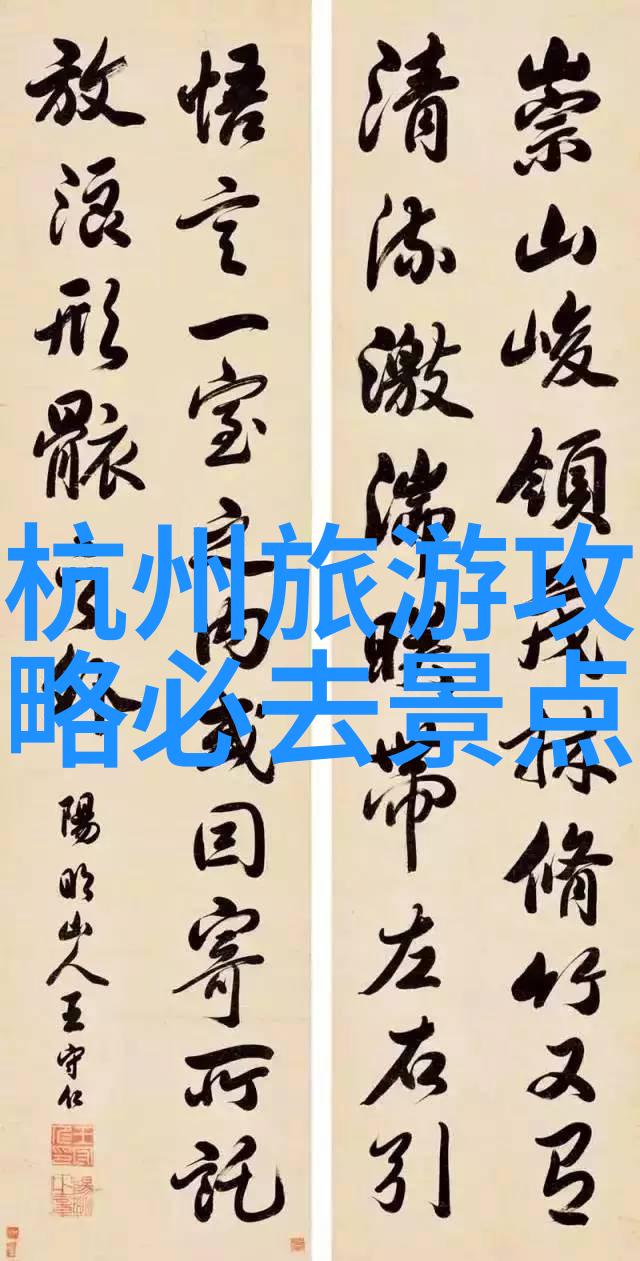 崇山峻領茂林脩竹又有
清流激湍暎帶左右引
悟言一室之内或因寄所託
放浪形骸之外
陽明山人王守仁
杭州旅游攻
略必去景点